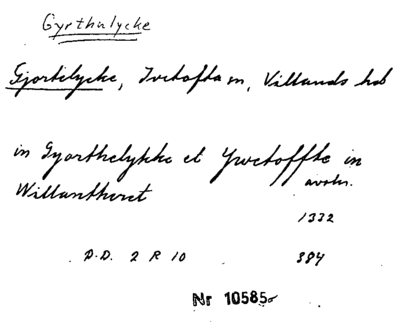 Gyrthalycke
Gjortilycke, Ivetofta sn, Villands hd
in Gyorthelykke et Ywetoffte in
Willantheret avskr.
1332
D.D. 2 R 10 384
Nr 10585